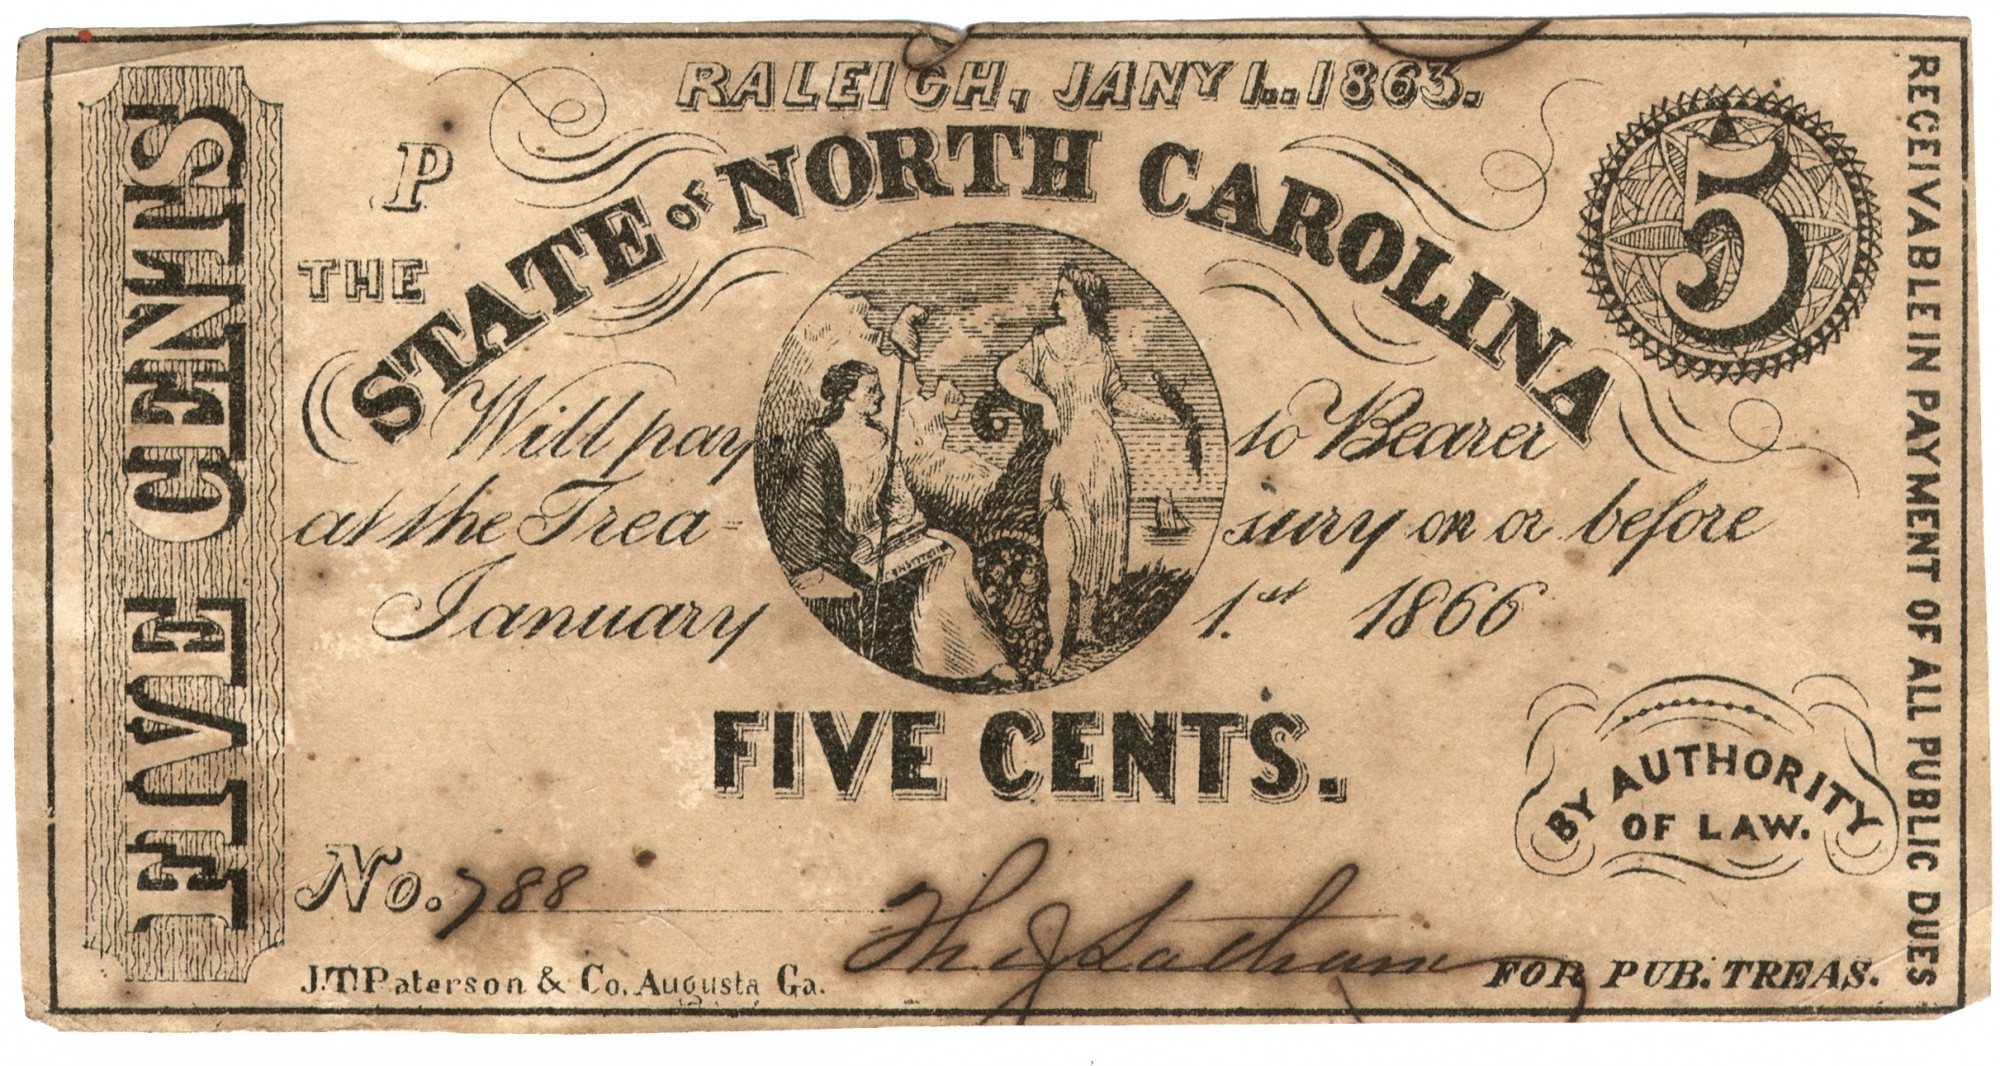 FIVE CENTS
RALEIGH, JANY 1...1863.
P
THE
STATE OF NORTH CAROLINA
5
Will pay to Bearer
at the Trea-sury on or before
January 1.st 1866
FIVE CENTS.
BY AUTHORITY
OF LAW.
No. 788
Th J Latham
J.T. Paterson & Co. Augusta Ga.
FOR PUB. TREAS.
RECEIVABLE IN PAYMENT OF ALL PUBLIC DUES